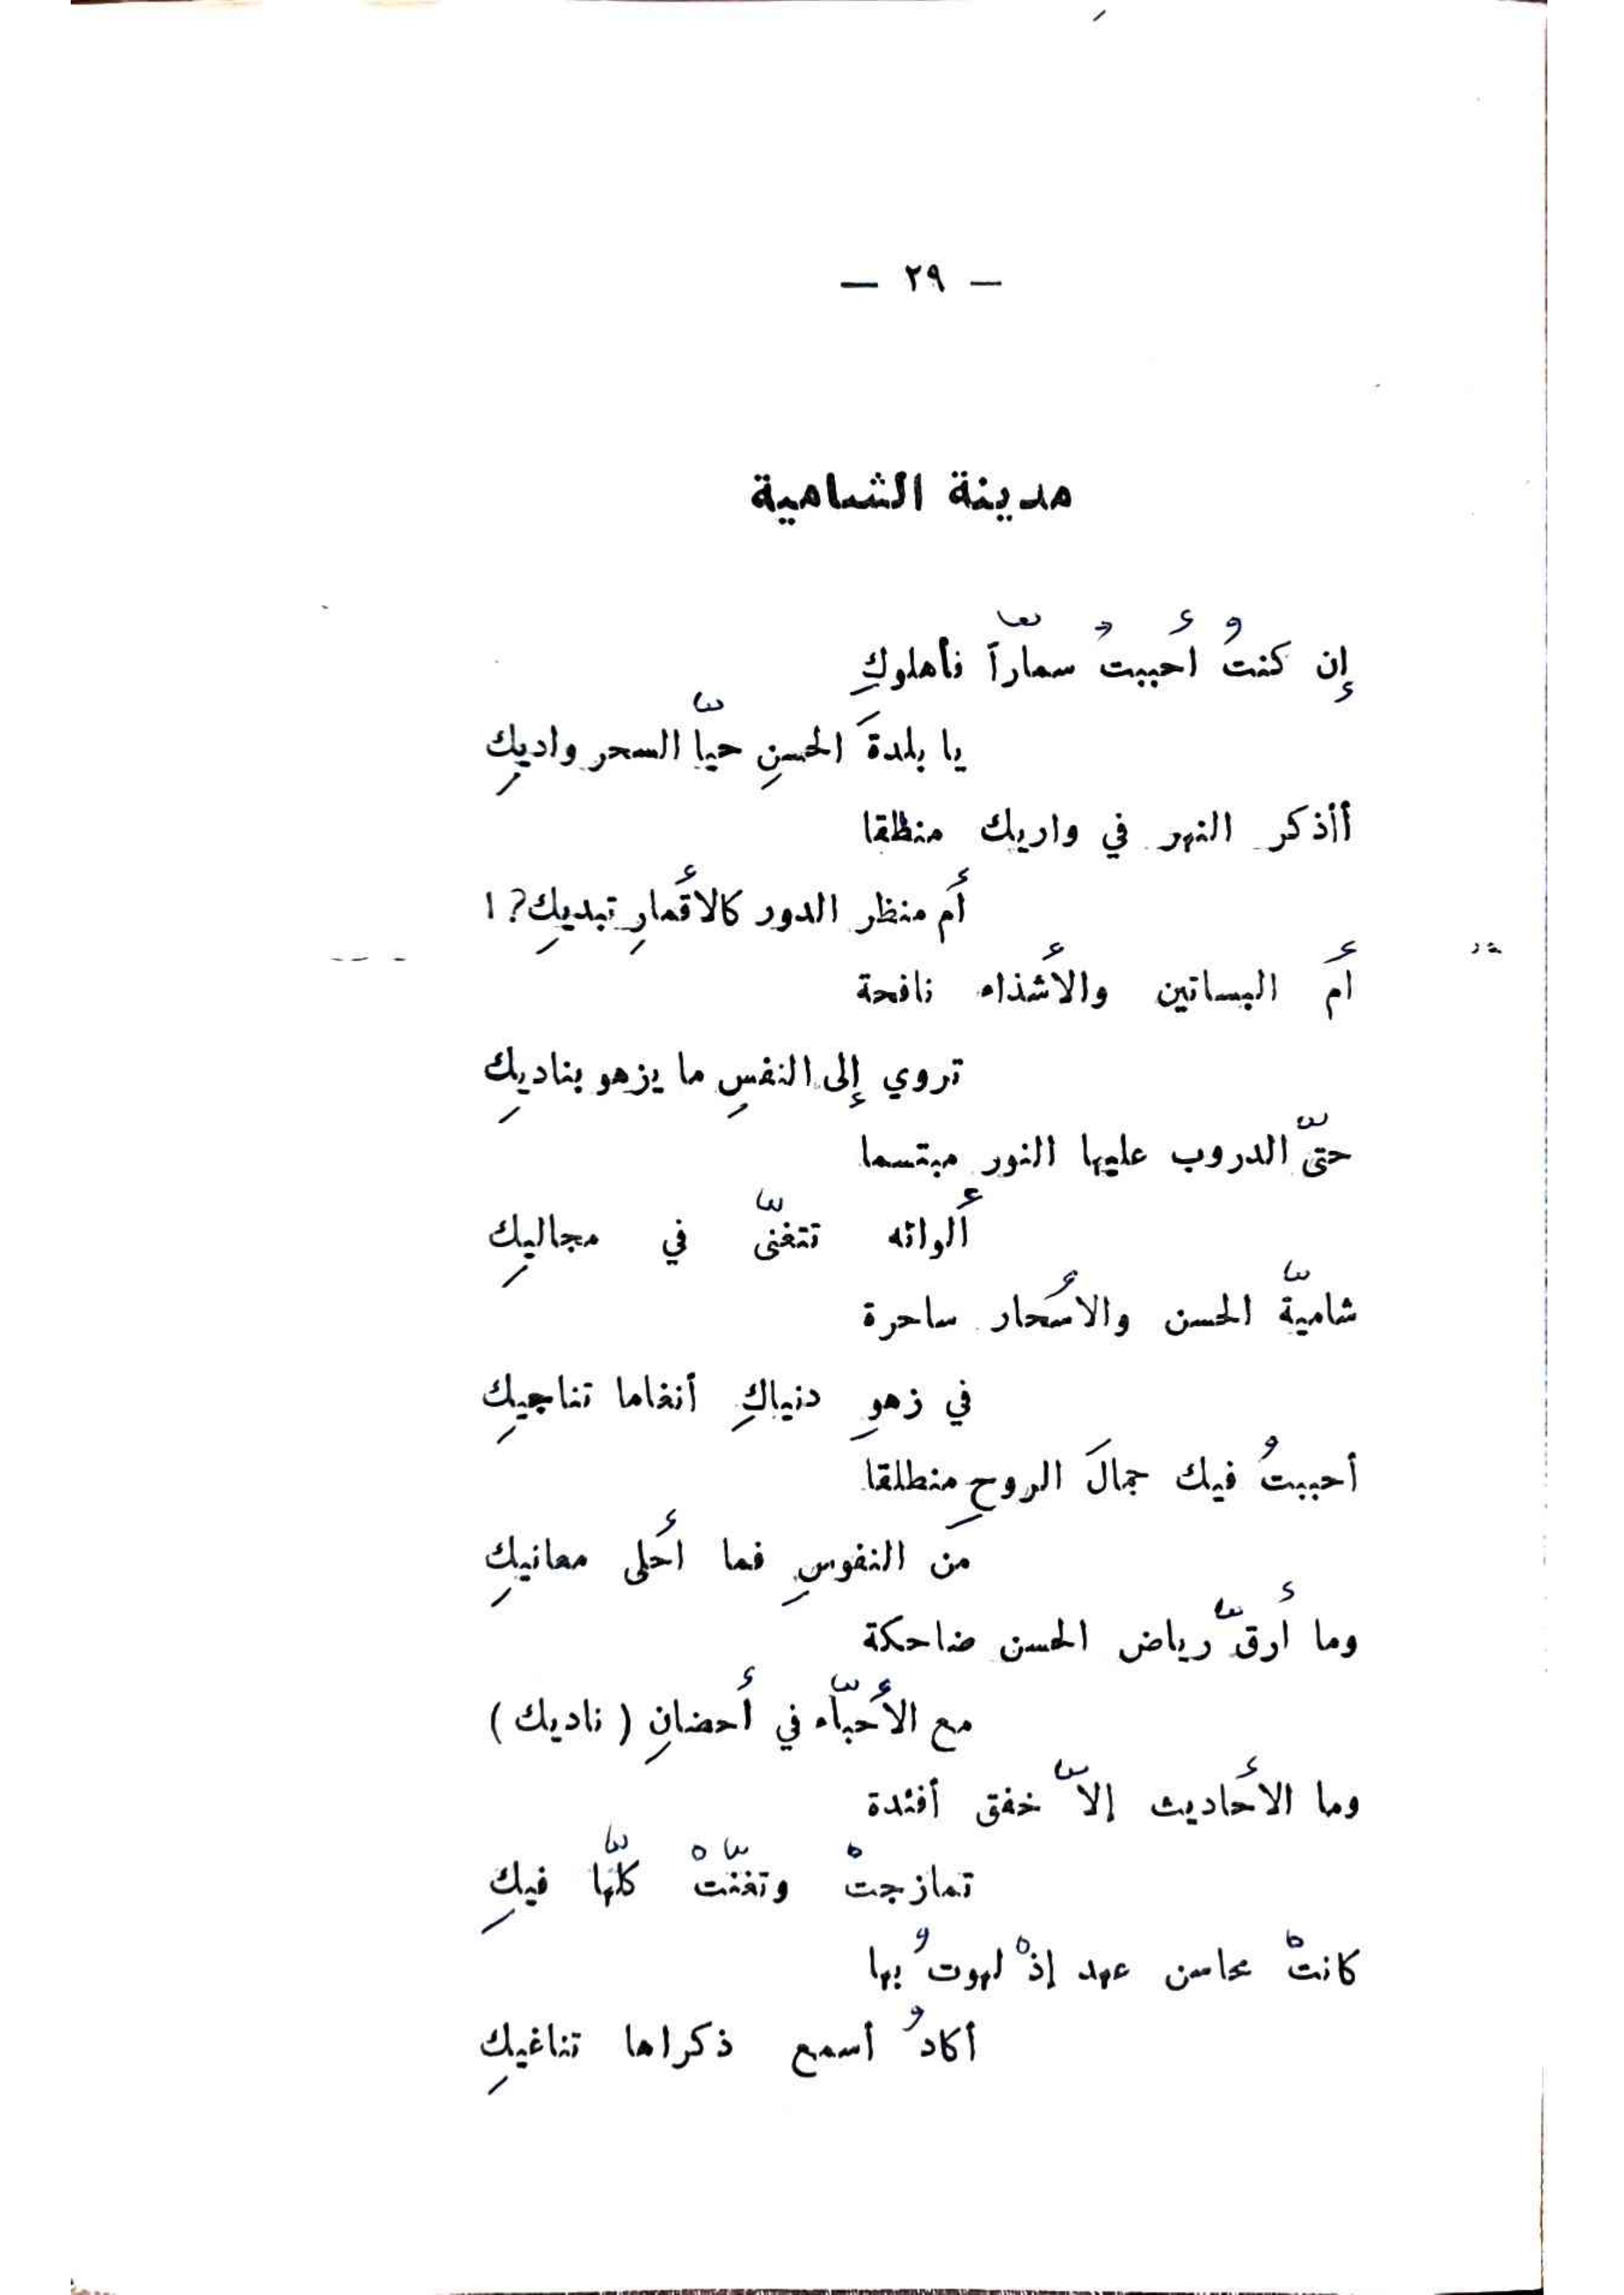 — ٢٩ —
مدينة الشامية
إن كنتُ أحببتُ سمّاراً فأهلوكِ
يا بلدةَ الحسنِ حيّا السحر واديكِ
أأذكر النهر في واريك منطلقا
أم منظر الدور كالأقمارِ تبديكِ؟!
أم البساتين والأشذاء نافحة
تروي إلى النفسِ ما يزهو بناديكِ
حتّى الدروب عليها النور مبتسما
ألوانه تتغنّى في مجاليكِ
شاميّة الحسن والأسحار ساحرة
في زهوِ دنياكِ أنغاما تناجيكِ
أحببتُ فيك جمالَ الروحِ منطلقا
من النفوسِ فما أحلى معانيكِ
وما أرقّ رياض الحسن ضاحكة
مع الأحبّاء في أحضانِ ( ناديك )
وما الأحاديث إلاّ خفق أفئدة
تمازجتْ وتغنّتْ كلّها فيكِ
كانتْ محاسن عهد إذْ لهوتُ بها
أكادُ أسمع ذكراها تناغيكِ